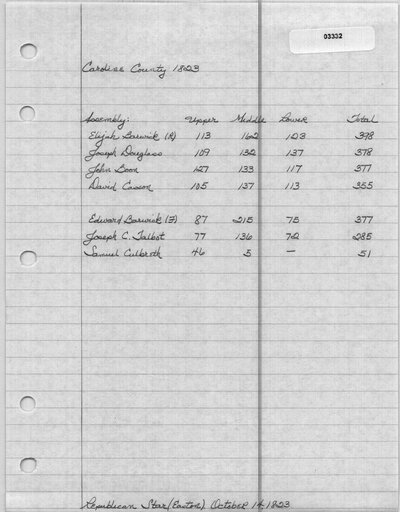 03332
Caroline County 1823
Assembly: Upper Middle Lower Total
Elijah Barwick (R) 113 162 123 398
Joseph Douglass 109 132 137 378
John Boon 127 133 117 377
David Casson 105 137 113 355
Edward Barwick (F) 87 215 75 377
Joseph C. Talbot 77 136 72 285
Samuel Culbreth 46 5 — 51
Republican Star (Easton). October 14, 1823